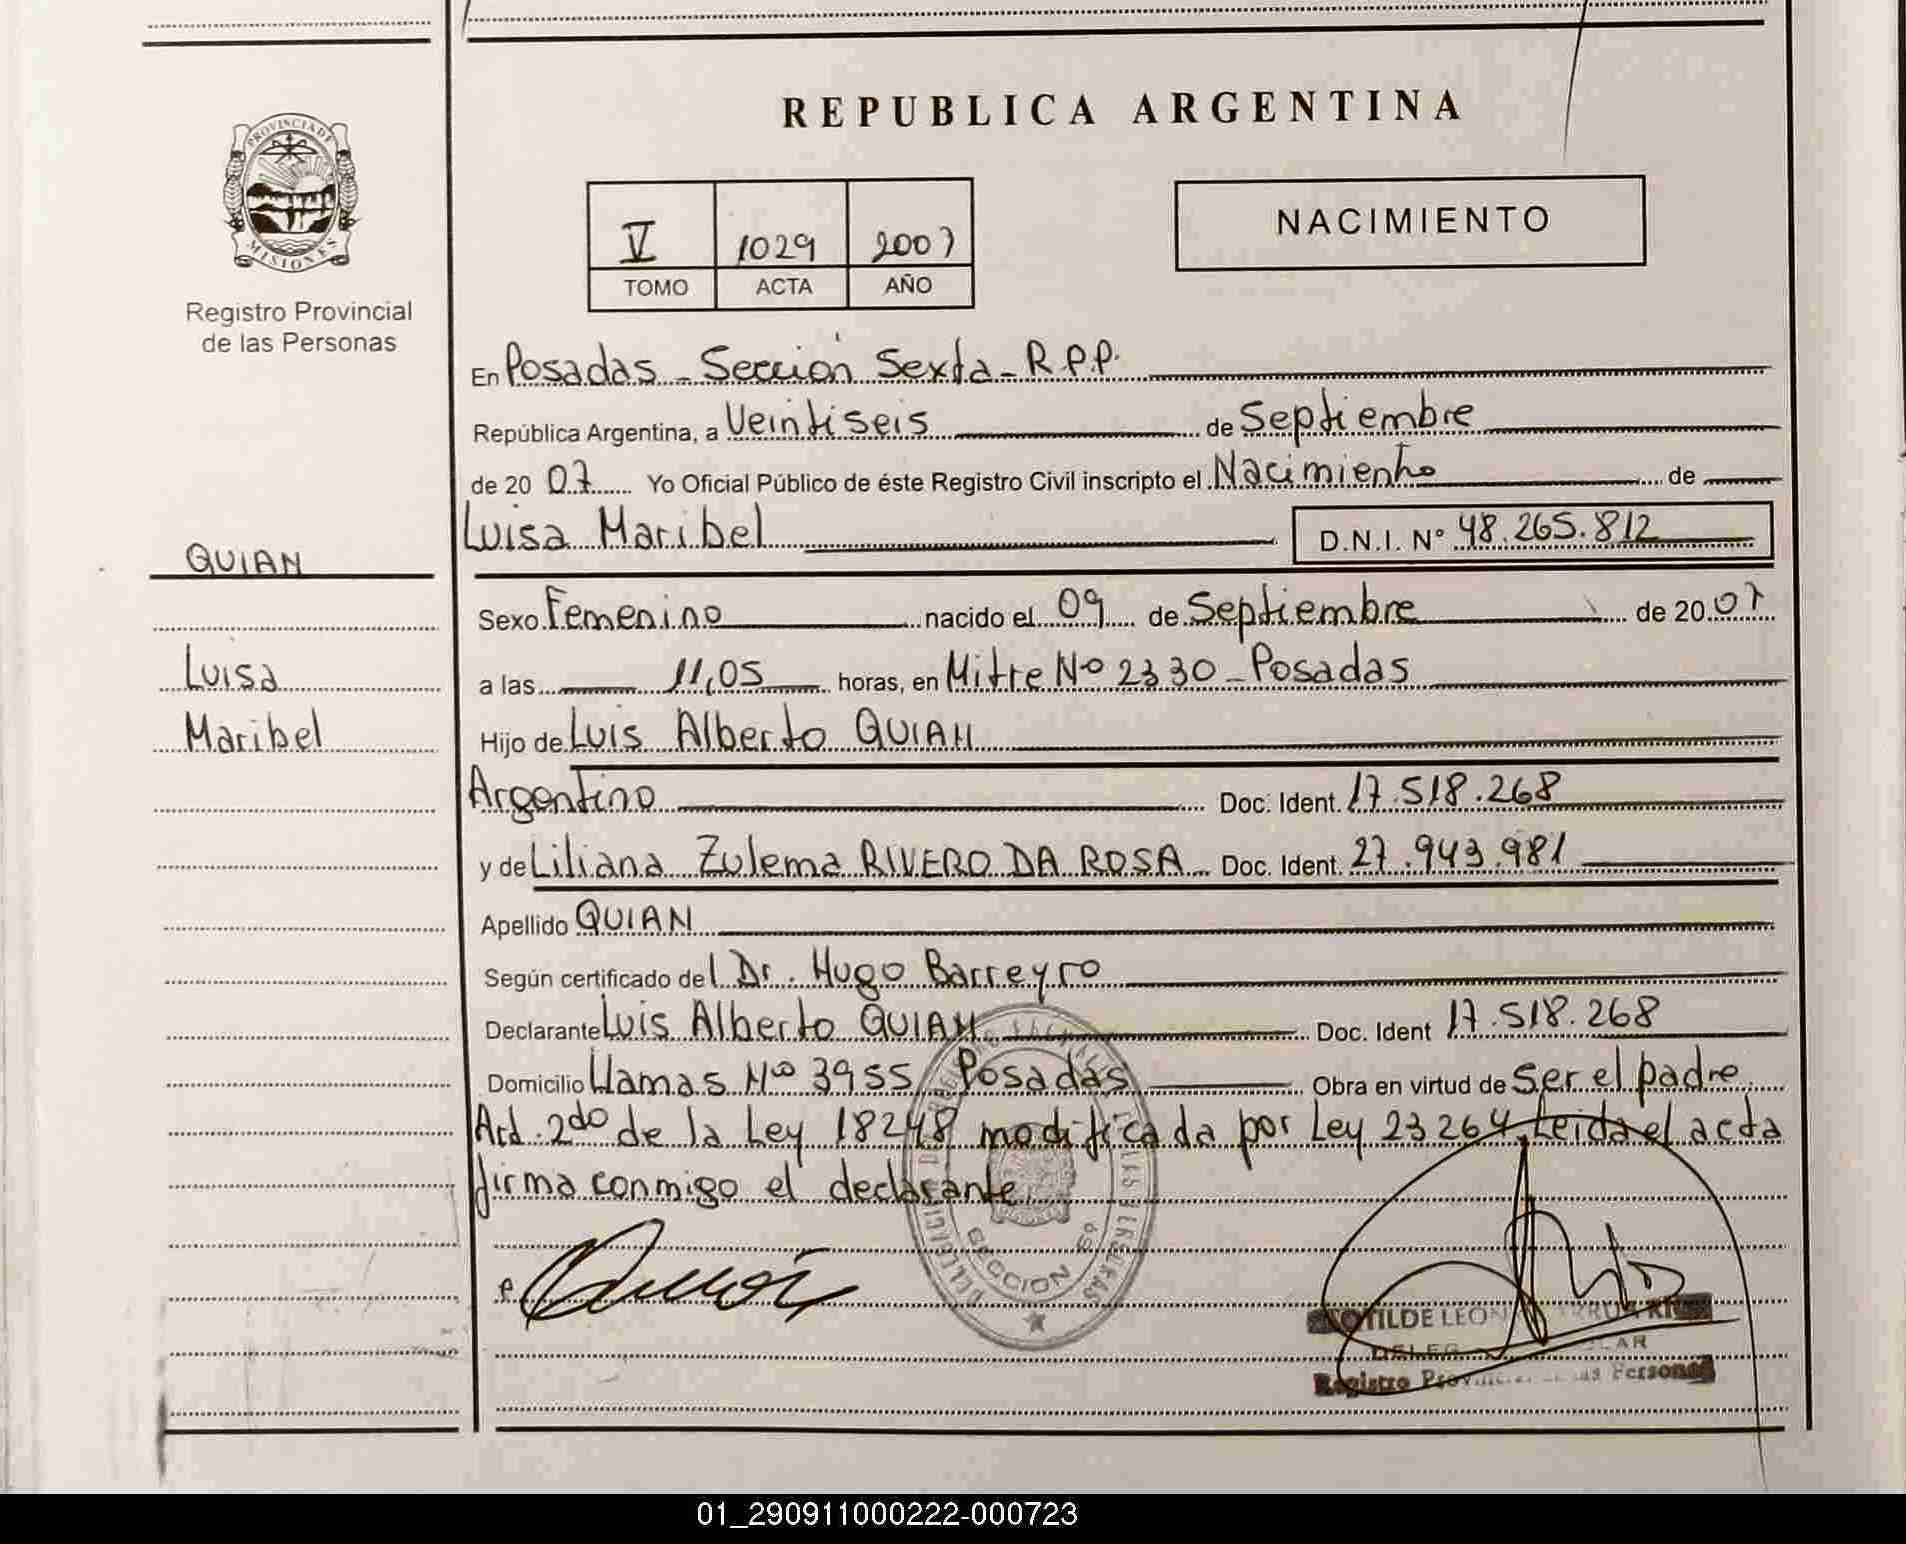 REPUBLICA ARGENTINA
PROVINCIA DE
MISIONES
Registro Provincial
de las Personas
V 1029 2007
TOMO ACTA AÑO
NACIMIENTO
En Posadas - Sección Sexta - R.P.P.
República Argentina, a Veintiseis de Septiembre
de 2007 Yo Oficial Público de éste Registro Civil inscripto el Nacimiento de
Luisa Maribel D.N.I. N° 48.265.812
QUIAN
Luisa
Maribel
Sexo Femenino nacido el 09 de Septiembre de 2007
a las 11,05 horas, en Mitre Nº 2330 - Posadas
Hijo de Luis Alberto QUIAN
Argentino Doc. Ident. 17.518.268
y de Liliana Zulema RIVERO DA ROSA Doc. Ident. 27.943.981
Apellido QUIAN
Según certificado del Dr. Hugo Barreyro
Declarante Luis Alberto QUIAN Doc. Ident 17.518.268
Domicilio Llamas Nº 3955 Posadas Obra en virtud de ser el padre
Art. 2do de la Ley 18248 modificada por Ley 23264 Leida el acta
firma conmigo el declarante
SECCION 6º
Registro Provincial de las Personas
01_290911000222-000723